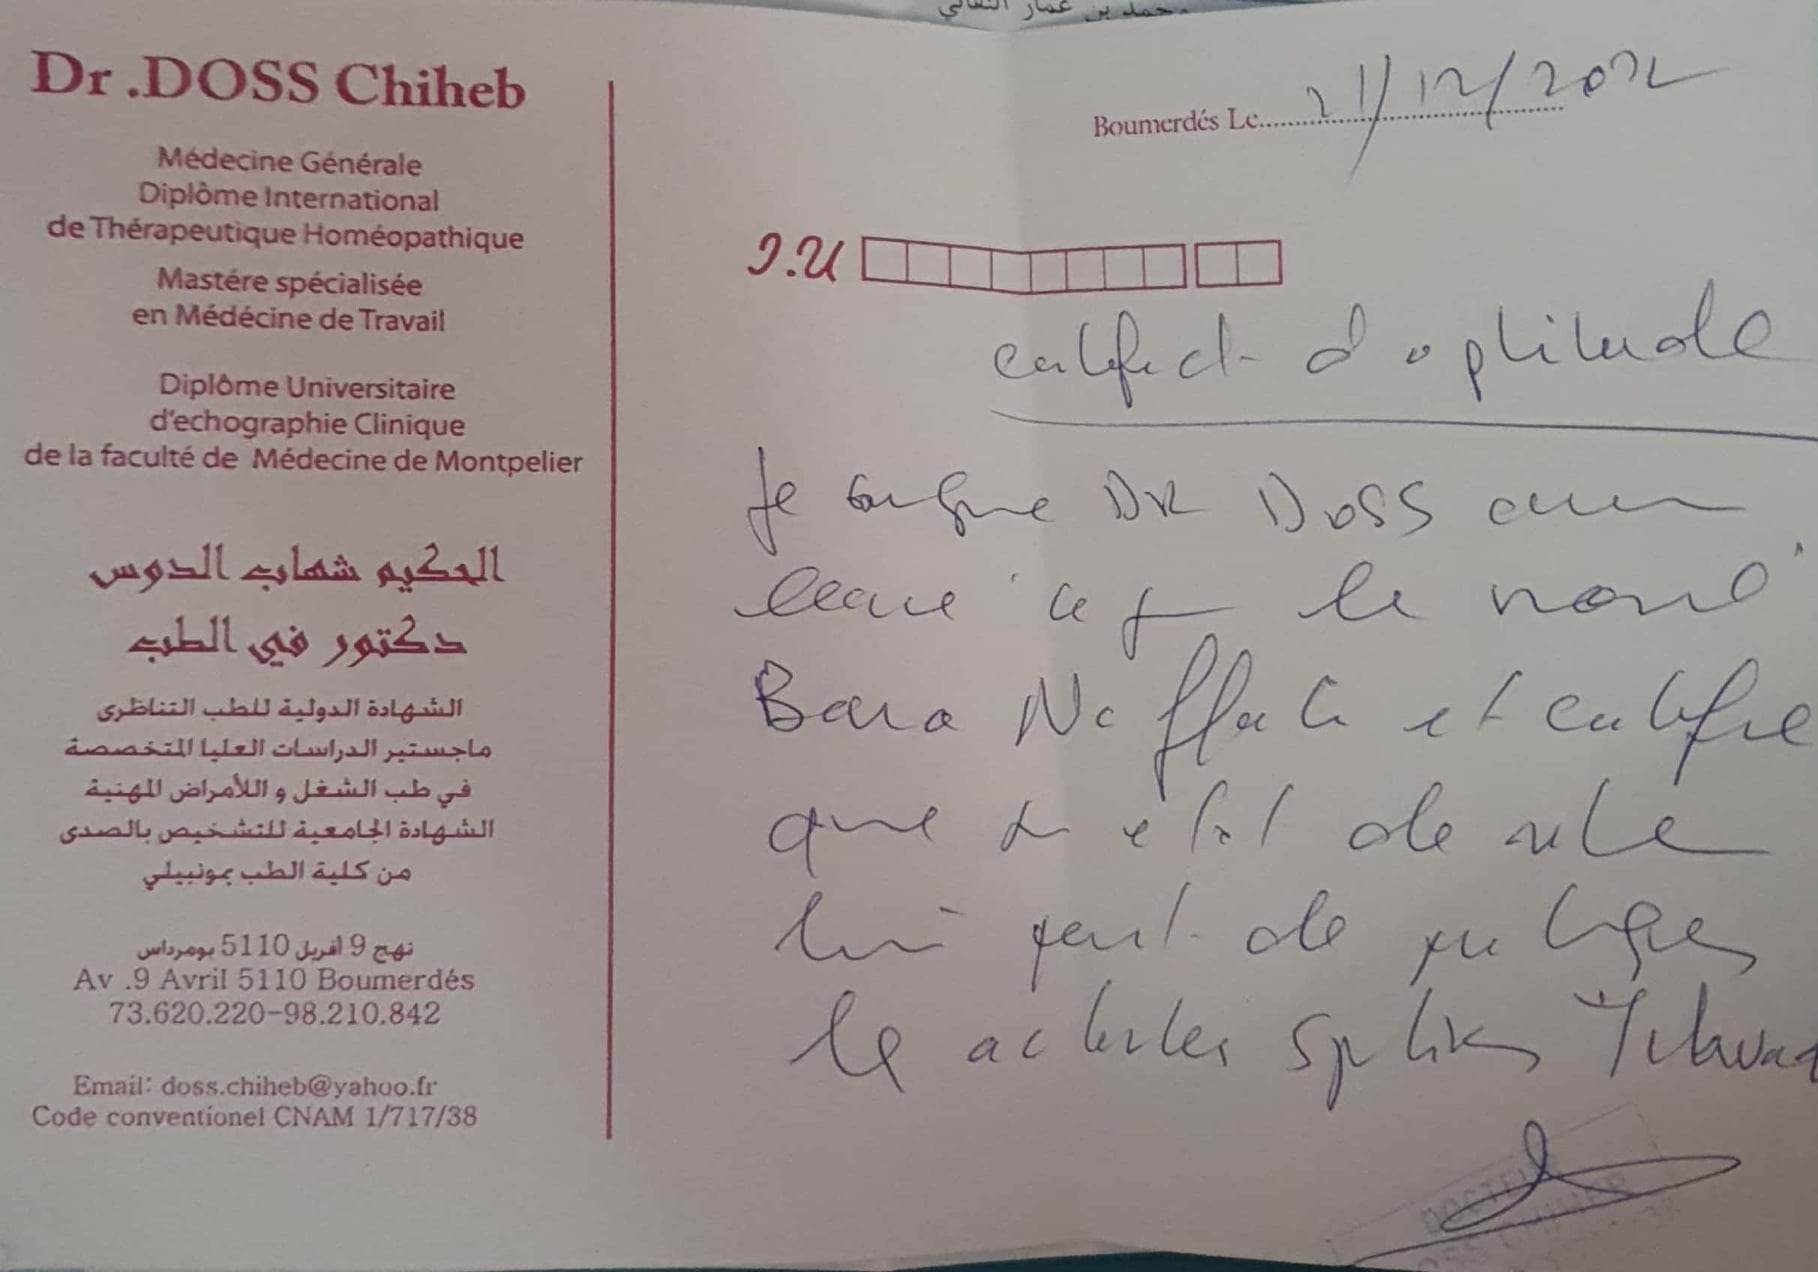 محمد بن عمار
Dr .DOSS Chiheb
Médecine Générale
Diplôme International
de Thérapeutique Homéopathique
Mastére spécialisée
en Médécine de Travail
Diplôme Universitaire
d'echographie Clinique
de la faculté de Médecine de Montpelier
الحكيم شهاب الدوس
دكتور في الطب
الشهادة الدولية للطب التناظري
ماجستير الدراسات العليا المتخصصة
في طب الشغل و اللأمراض المهنية
الشهادة الجامعية للتشخيص بالصدى
من كلية الطب بمونبيلي
نهج 9 أفريل 5110 بومرداس
Av .9 Avril 5110 Boumerdés
73.620.220-98.210.842
Email: doss.chiheb@yahoo.fr
Code conventionel CNAM 1/717/38
Boumerdés Le 21/12/2022
I.U
certificat d'aptitude
Je soussigné DR DOSS avoir
examiné ce jour le nommé
Bara Neffati et certifie
que son état de santé
lui permet de pratiquer
les activités sportives
DOCTEUR
DOSS CHIHEB